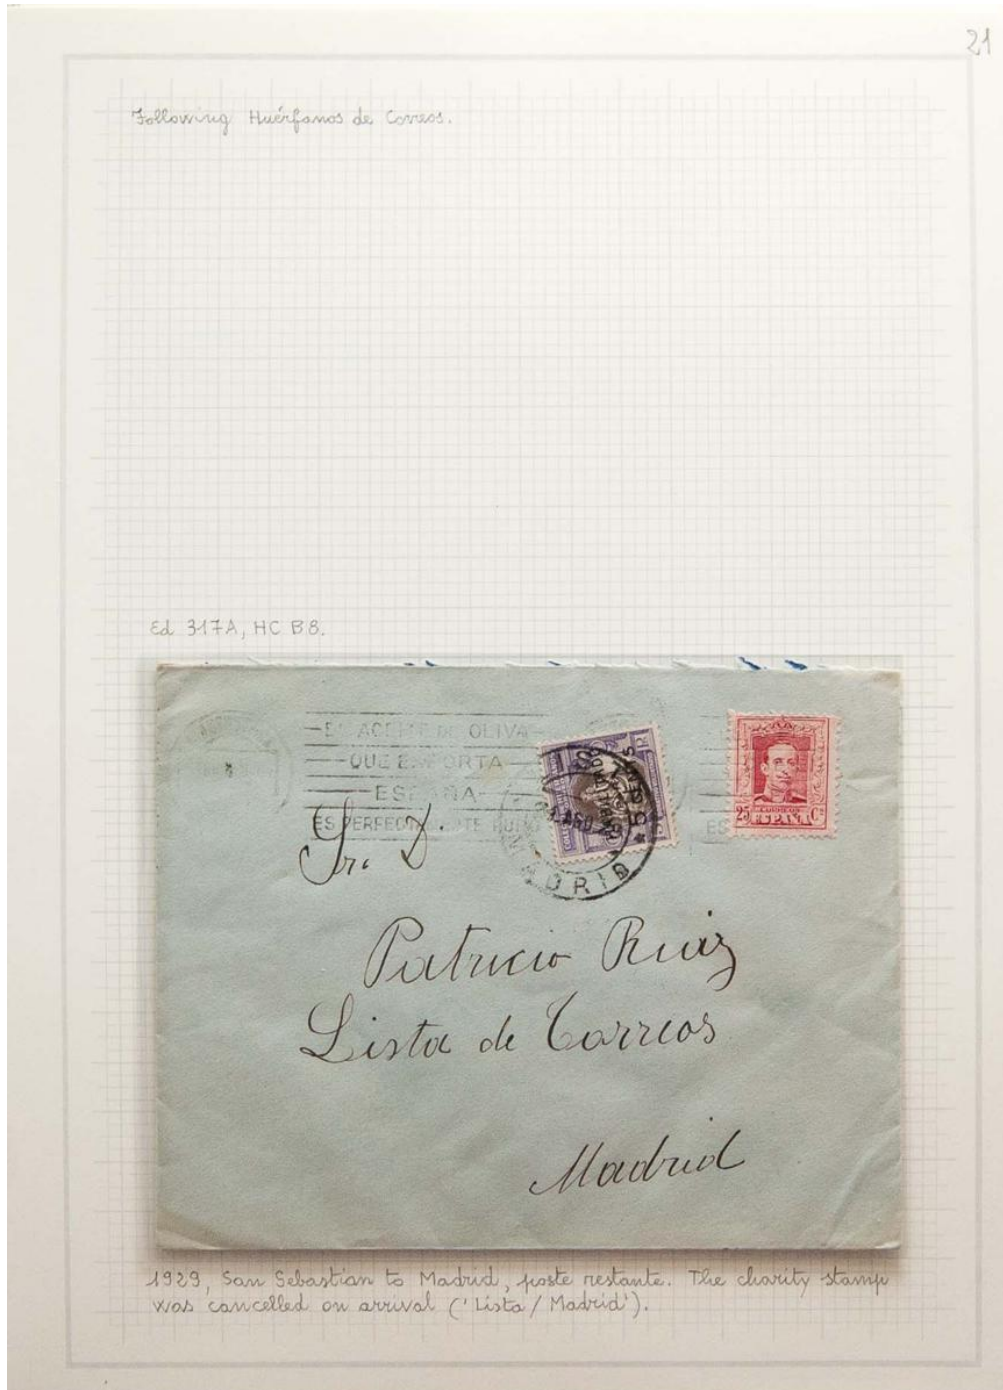 21
Following Huérfanos de Correos.
Ed 317A, HC B8.
EL ACEITE DE OLIVA
QUE EXPORTA
ESPAÑA
ES PERFECTAMENTE PURO
MADRID
5 CENTS
25 CORREOS Cs
ESPAÑA
ES
Sr. D.
Patricio Ruiz
Lista de Correos
Madrid
1929, San Sebastian to Madrid, poste restante. The charity stamp
was cancelled on arrival ('Lista / Madrid').